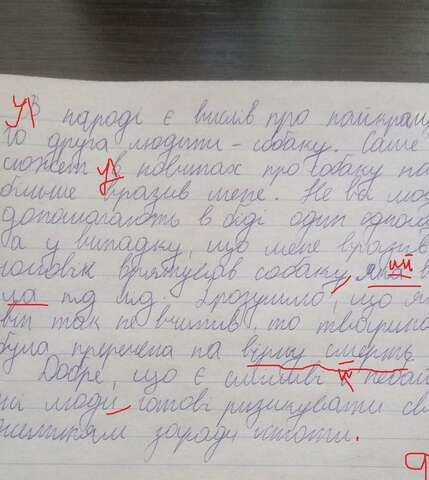 У В народі є вислів про найкращо
го друга людини - собаку. Саме
сюжет У в новинах про собаку на
більше вразив мене. Не
допомагають в біді один одном
а у випадку, що мене вразив
чоловік врятував собаку, яка ий в
ла під лід. Зрозуміло, що як
він так не вчинив, то тварина
була приречена на вірну смерть
Добре, що є сміливі й
ні люди, готові ризикувати св
життям заради істоти.
9